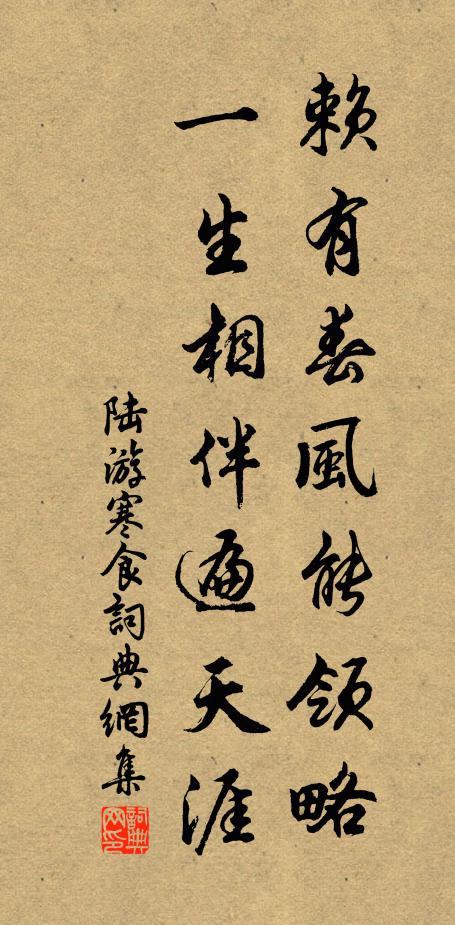 賴有春風能領略
一生相伴遍天涯
陆游寒食詞典網集
詞典
网印